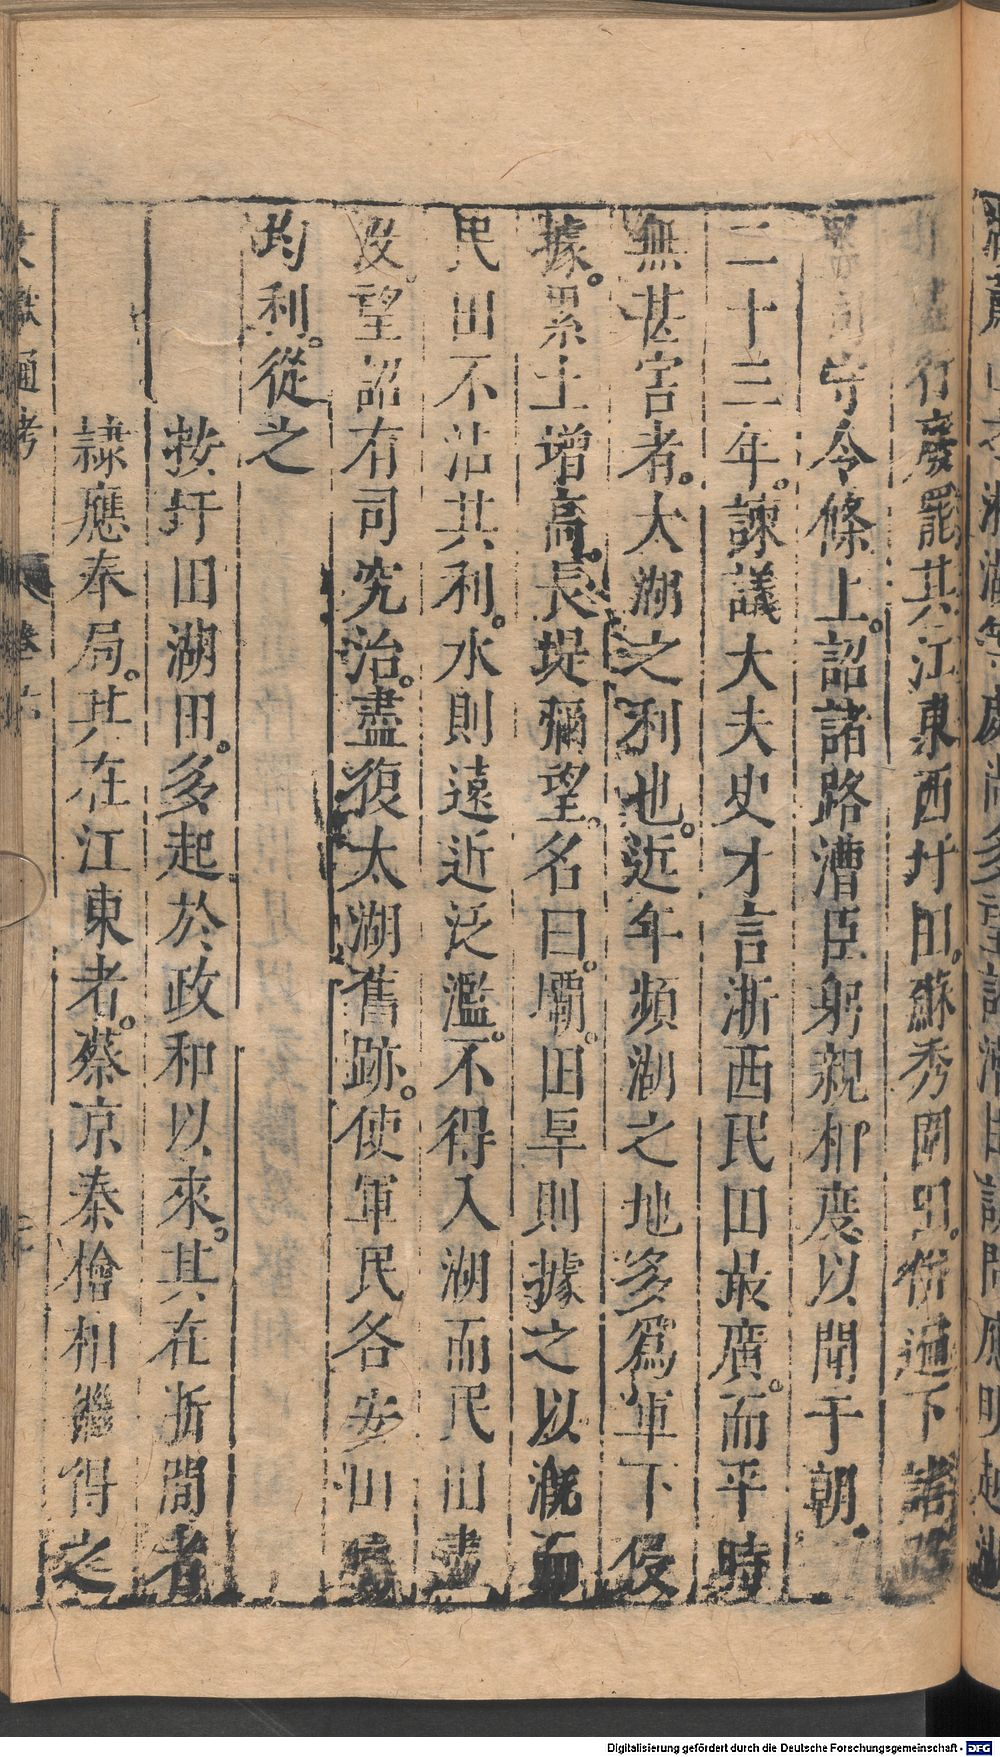 行廢罷其江東西圩田蘇秀圍田併遍下諸路
監司守令條上詔諸路漕臣躬親相度以聞于朝
二十三年諫議大夫史才言浙西民田最廣而平時
無甚害者太湖之利也近年頻湖之地多爲軍下侵
據累土增高長堤彌望名曰壩田旱則據之以溉而
民田不沾其利水則遠近泛濫不得入湖而民田盡
没望詔有司究治盡復太湖舊跡使軍民各安田疇
均利從之
按圩田湖田多起於政和以來其在浙間者
隷應奉局其在江東者蔡京秦檜相繼得之
文獻通考 卷之六
Digitalisierung gefördert durch die Deutsche Forschungsgemeinschaft - DFG